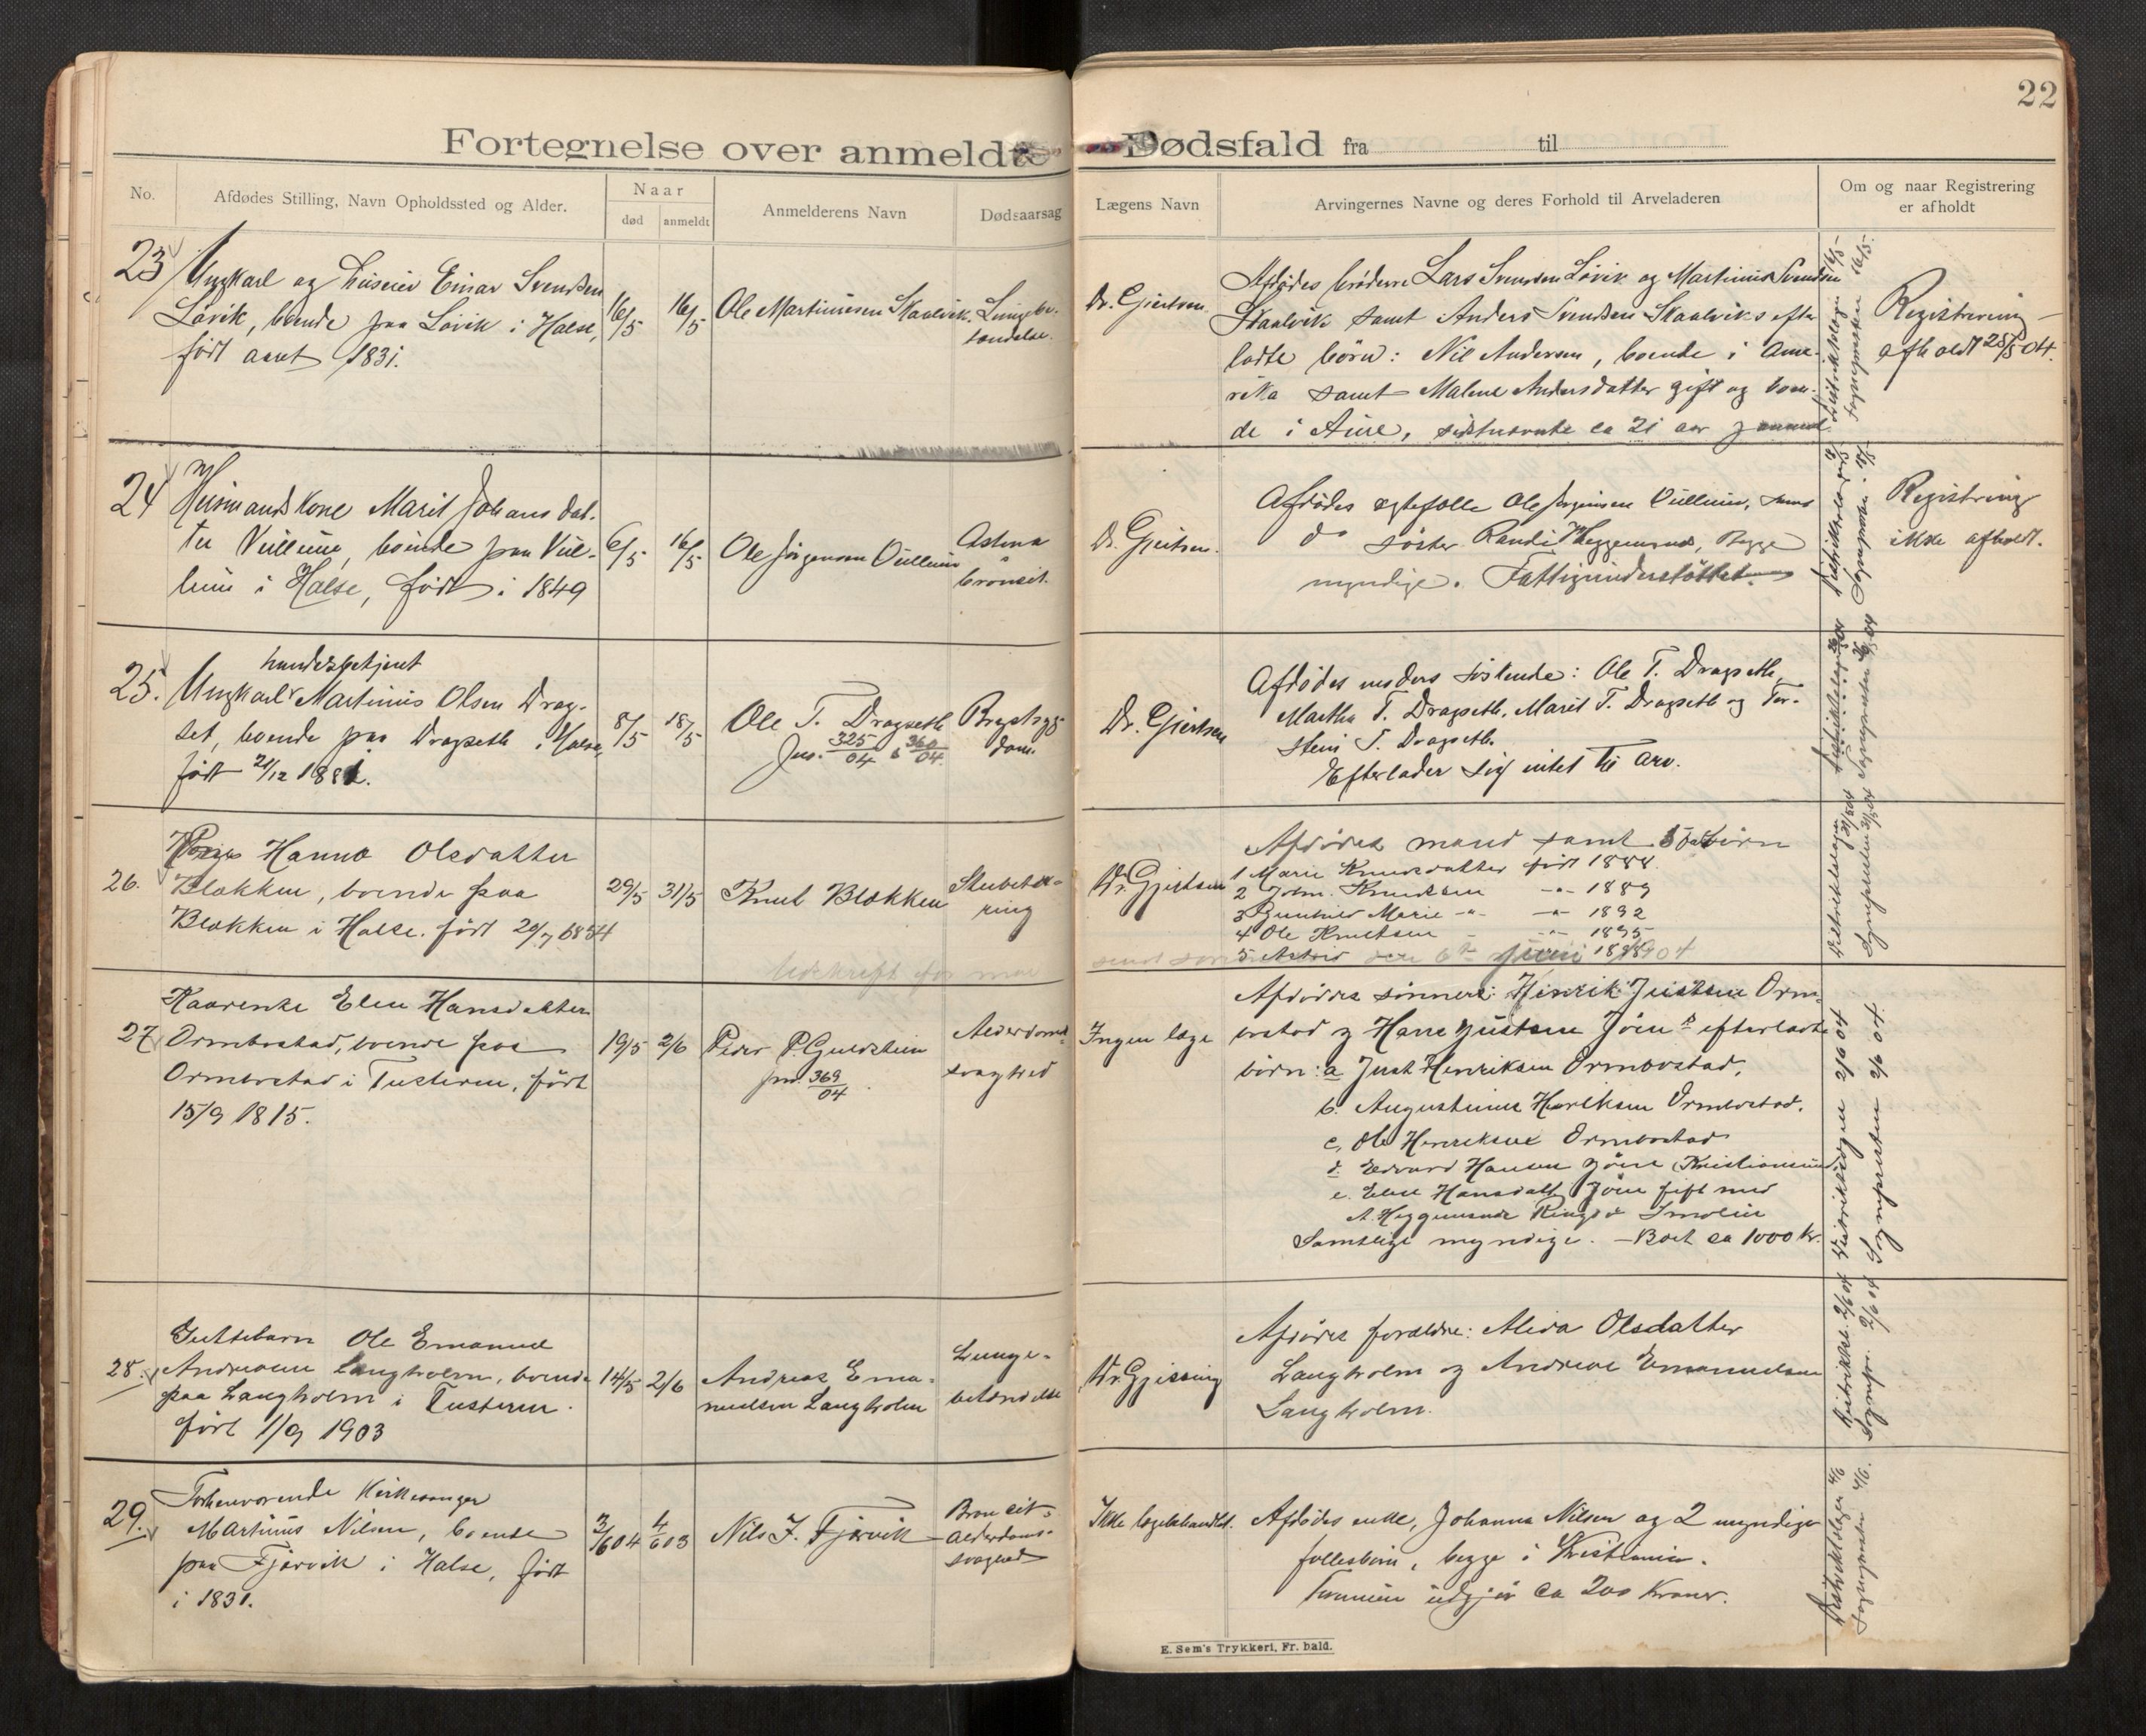 22
Fortegnelse over anmeldte Dødsfald fra til
No.
Afdødes Stilling, Navn Opholdssted og Alder.
Naar
død
anmeldt
Anmelderens Navn
Dødsaarsag
Lægens Navn
Arvingernes Navne og deres Forhold til Arveladeren
Om og naar Registrering
er afholdt
23
Ungkarl og huseier Einar Svendsen
Løvik, boende paa Løvik i Halse,
født aaret 1831.
16/5
16/5
Ole Martinusen Skaalvik.
Lungebe-
tændelse.
Dr. Gjertsen.
Afdødes brødre Lars Svendsen Løvik og Martinus Svendsen
Skaalvik samt Anders Svendsen Skaalviks efter
ladte børn: Nil Andersen, boende i Ame-
rika samt Malene Andersdatter gift og boen-
de i Aure, sidstnævnte ca 21 aar gammel.
Distriktslægen 16/5
Sognepresten 16/5
Registrering
afholdt 25/5 04.
24
Husmandskone Marit Johansdat-
ter Vullum, boende paa Vul-
lum i Halse, født i 1849
6/5
16/5
Ole Jørgensen Vullum
Astma
bronsit.
Dr. Gjertsen.
Afdødes egtefælle Ole Jørgensen Vullum, samt
do søster Randi Heggemsnes, Begge
myndige. Fattigunderstøttet.
Registrering
ikke afholdt.
25.
handelsbetjent
Ungkarl Martinus Olsen Drag-
set, boende paa Dragseth i Halse,
født 21/12 1881.
8/5
18/5
Ole T. Dragseth
Jno. 325/04 & 360/04.
Brystsyg-
dom.
Dr. Gjertsen
Afdødes søskende: Ole T. Dragseth,
Martha T. Dragseth, Marit T. Dragseth og Tor-
stein T. Dragseth.
Efterlader sig intet til arv.
26.
Hanna Olsdatter
Blakken, boende paa
Blakken i Halse. født 20/7 1854
29/5
31/5
Knut Blakken
Dr. Gjertsen
Afdødes mand samt 5 børn
1 Marie Knudsdatter født 1888.
2 John Knudsen -"- 1889
3 Gunhild Marie -"- -"- 1892
4 Ole Knutsen - -"- 1895
5 Astrid
Udskrift for
den 6te juni 1904
27
Kaarenke Elen Hansdatter
Ormbostad, boende paa
Ormbostad i Tusteren, født
15/9 1815.
19/5
2/6
Peder P. Guldstein
jno. 369/04.
Alderdoms-
svaghed
Ingen læge
Afdødes sønner: Henrik Justsen Orm-
bostad og Hans Justsen Jøens efterladte
børn: a Just Henriksen Ormbostad.
b. Augustinus Henriksen Ormbostad.
c. Ole Henriksen Ormbostad
d. Edvard Hansen Jøen Kristiansund
e. Elen Hansdatter Jøen gift med
A. Heggemsnes Ringsø Smølen
Samtlige myndige. - Boet ca 1000 kr.
Distriktslægen 2/6 04
Sognepresten 2/6 04.
28.
Guttebarn Ole Emanuel
Andreasen Langholm, boende
paa Langholm i Tusteren.
født 1/9 1903
14/5
2/6
Andreas Ema-
nuelsen Langholm
Lunge-
betændelse
Dr. Gjessing
Afdødes forældre: Alida Olsdatter
Langholm og Andreas Emanuelsen
Langholm.
Distriktsl. 2/6 04
Sognepr. 2/6 04
29.
Forhenværende Kirkesanger
Martinus Nilsen, boende
paa Fjærvik i Halse, født
i 1831.
3/6 04
4/6 03
Nils J. Fjærvik
Broncit-
alderdoms-
svaghed
Ikke lægebehandlet.
Afdødes enke, Johanna Nilsen og 2 myndige
fællesbørn, begge i Kristiania.
udgjør ca 200 Kroner.
Distriktslægen 4/6
Sognepresten 4/6.
E. Sem's Trykkeri, Fr.hald.